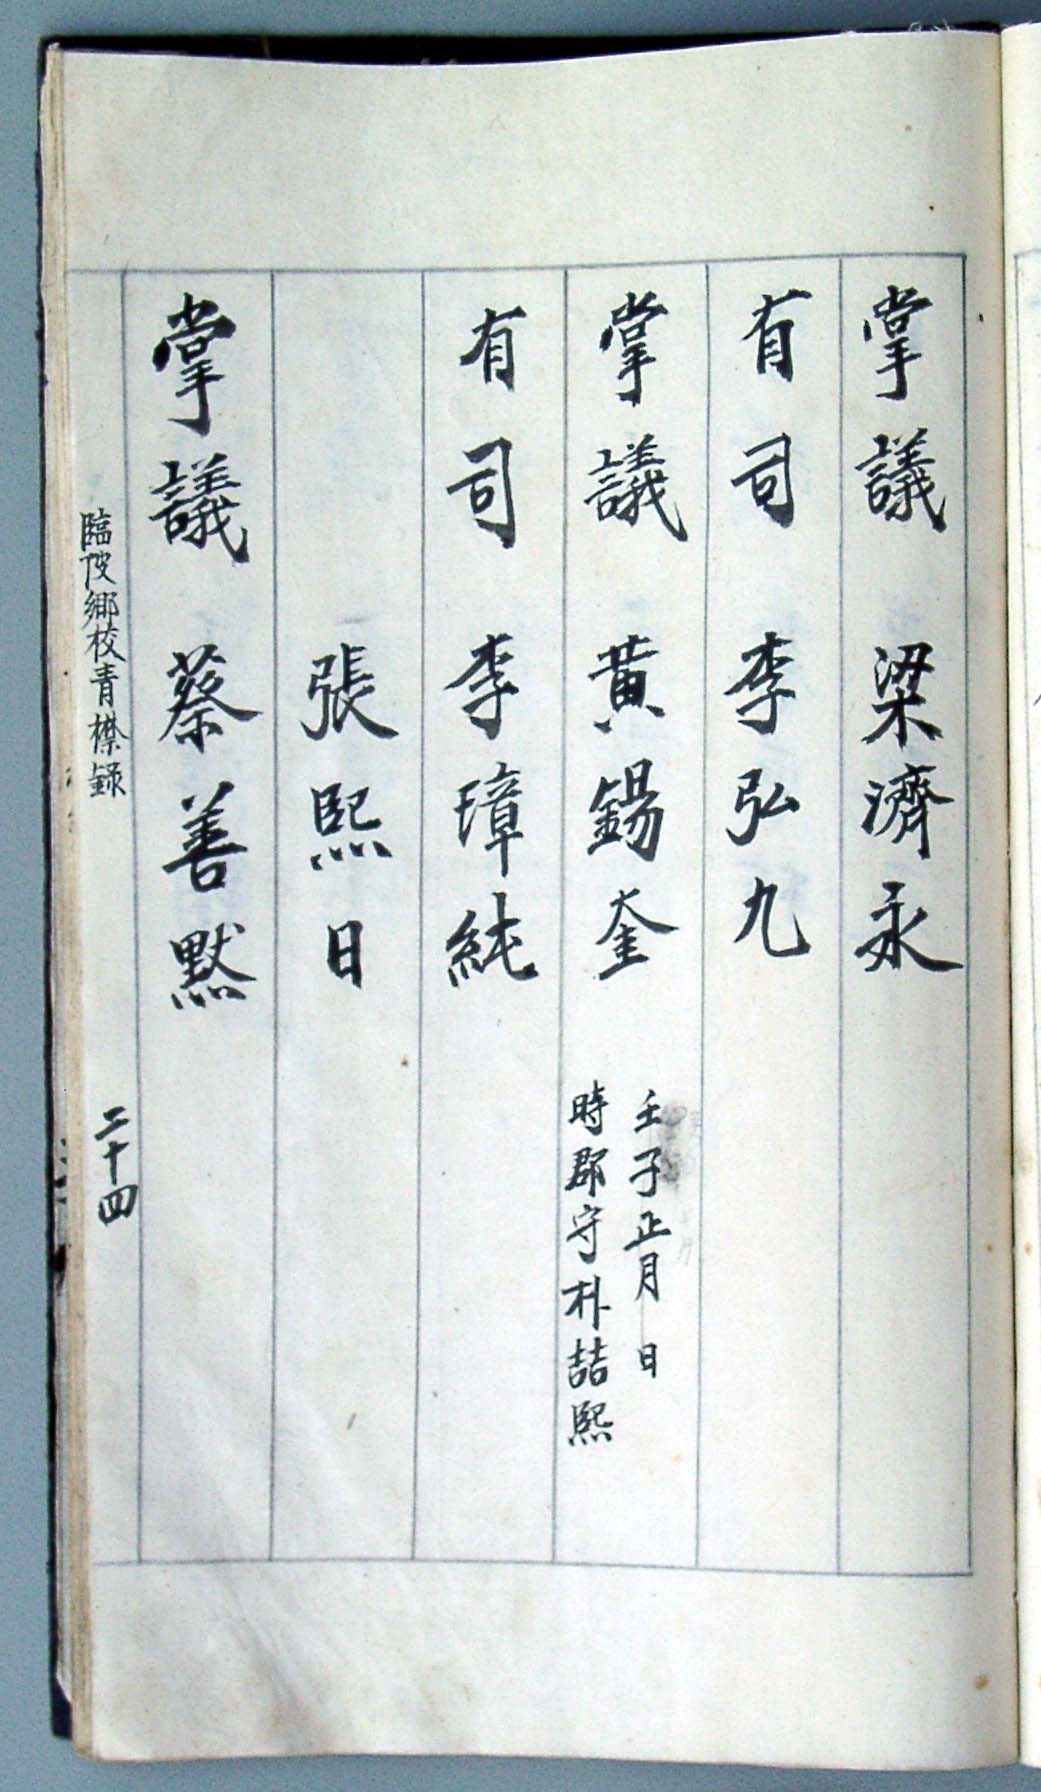 掌議 梁濟永
有司 李弘九
掌議 黄錫奎
壬子正月 日
時郡守朴喆熙
有司 李璋純
張熙日
掌議 蔡善默
臨陂鄉校青襟録
二十四